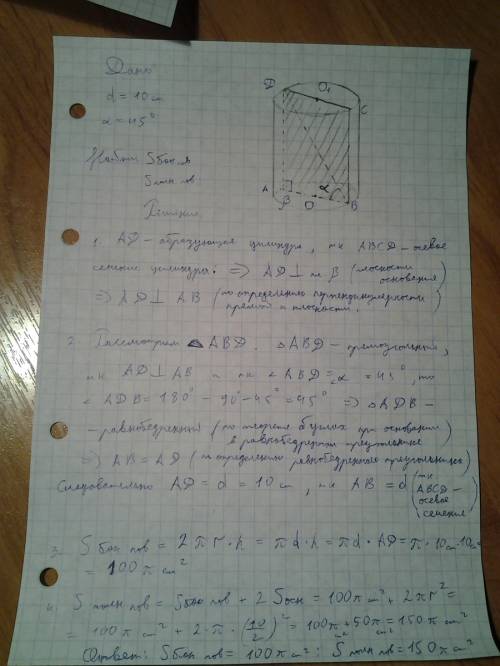 Дано
d = 10 cm
α = 45°
Найти S бок. п
S полн пов.
Решение
D O₁ C
A β O α B
1. AD – образующая цилиндра, тк ABCD – осевое
сечение цилиндра. ⇒ AD ⊥ пл β (плоскости основания)
⇒ AD ⊥ AB (по определению перпендикулярности прямой и плоскости.)
2. Рассмотрим △ABD. △ABD – прямоугольный,
тк AD ⊥ AB и тк ∠ABD = ∠α = 45°, то
∠ADB = 180° – 90° – 45° = 45° ⇒ △ADB –
– равнобедренный (по теореме о углах при основании в равнобедренном треугольнике)
⇒ AB = AD (по определению равнобедренного треугольника)
Следовательно AD = d = 10 cm, тк AB = d (тк ABCD – осевое сечение)
3. S бок пов = 2πr·h = πd·h = πd·AD = π·10cm·10cm =
= 100π cm²
4. S полн пов = S бок пов + 2 S осн = 100π cm² + 2πr² =
= 100π cm² + 2·π·(10/2)² = 100π cm² + 50π cm² = 150π cm²
Ответ: S бок пов = 100π cm²; S полн пов = 150π cm²